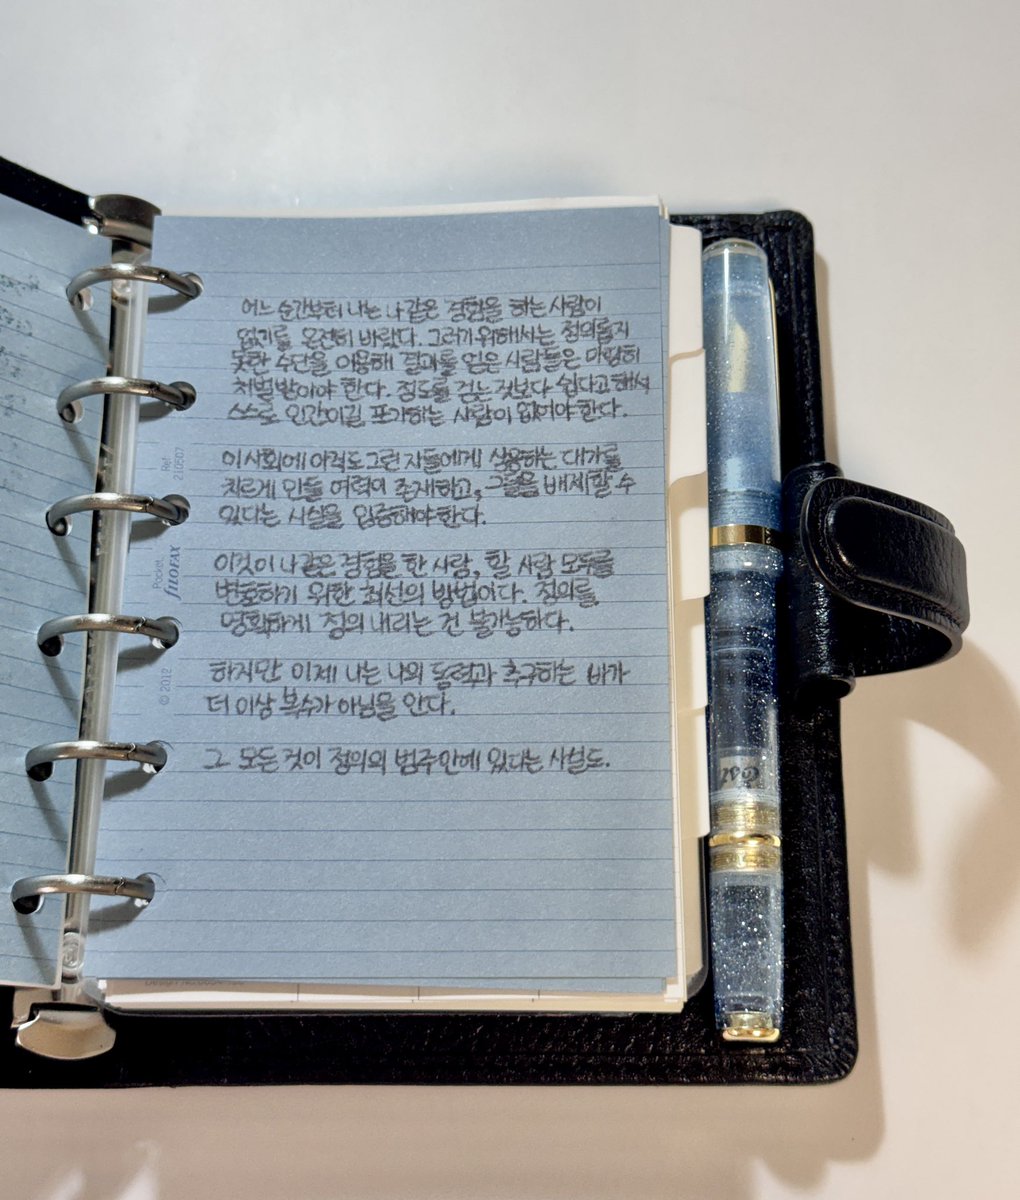 어느 순간부터 나는 나 같은 경험을 하는 사람이
없기를 온전히 바랐다. 그러기 위해서는 정의롭지
못한 수단을 이용해 결과를 얻은 사람들은 마땅히
처벌받아야 한다. 정도를 걷는 것보다 쉽다고 해서
스스로 인간이길 포기하는 사람이 없어야 한다.
이 사회에 아직도 그런 자들에게 상응하는 대가를
치르게 만들 여력이 존재하고, 그들을 배제할 수
있다는 사실을 입증해야 한다.
이것이 나 같은 경험을 한 사람, 할 사람 모두를
변호하기 위한 최선의 방법이다. 정의를
명확하게 정의 내리는 건 불가능하다.
하지만 이제 나는 나의 동력과 추구하는 바가
더 이상 복수가 아님을 안다.
그 모든 것이 정의의 범주 안에 있다는 사실도.
Ref. 210507
Pocket
filofax
© 2012